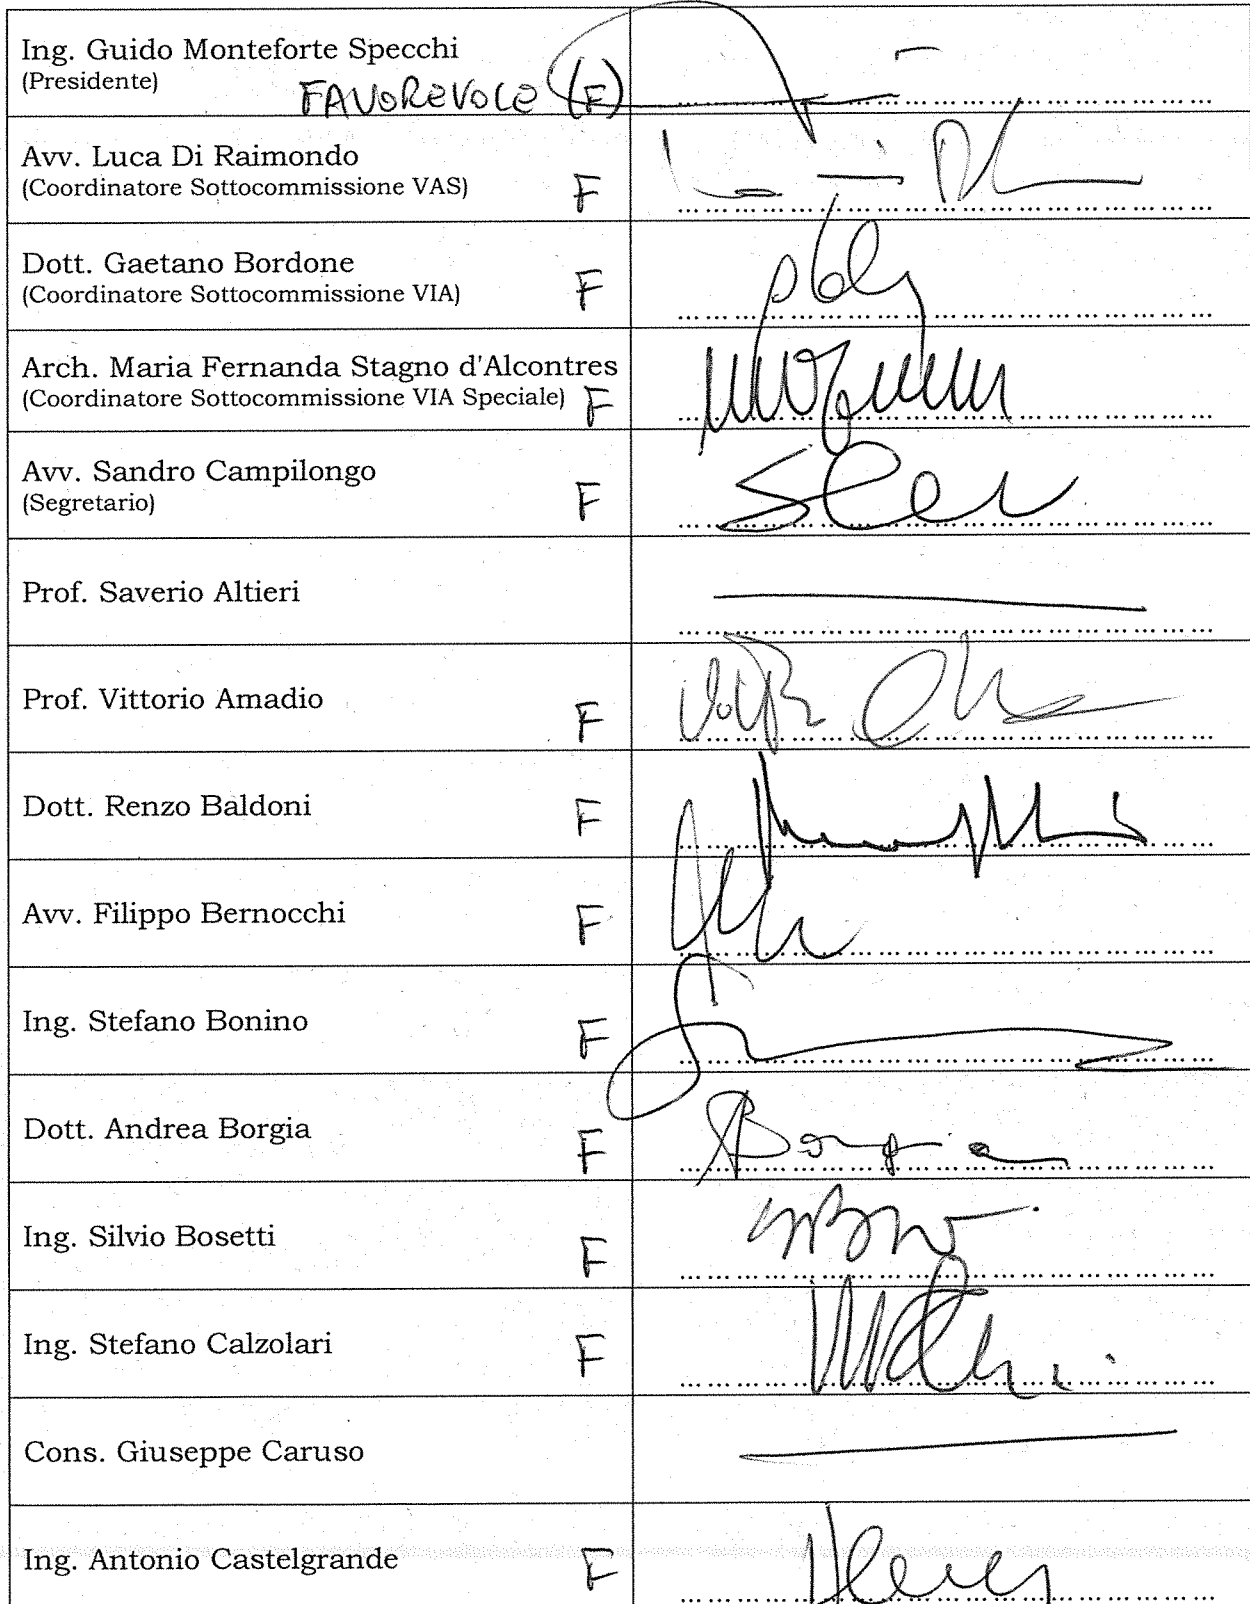 Ing. Guido Monteforte Specchi
(Presidente)
FAVOREVOLE (F)
Avv. Luca Di Raimondo
(Coordinatore Sottocommissione VAS)
F
Dott. Gaetano Bordone
(Coordinatore Sottocommissione VIA)
F
Arch. Maria Fernanda Stagno d'Alcontres
(Coordinatore Sottocommissione VIA Speciale) F
Avv. Sandro Campilongo
(Segretario)
F
Prof. Saverio Altieri
Prof. Vittorio Amadio
F
Dott. Renzo Baldoni
F
Avv. Filippo Bernocchi
F
Ing. Stefano Bonino
F
Dott. Andrea Borgia
F
Ing. Silvio Bosetti
F
Ing. Stefano Calzolari
F
Cons. Giuseppe Caruso
Ing. Antonio Castelgrande
F